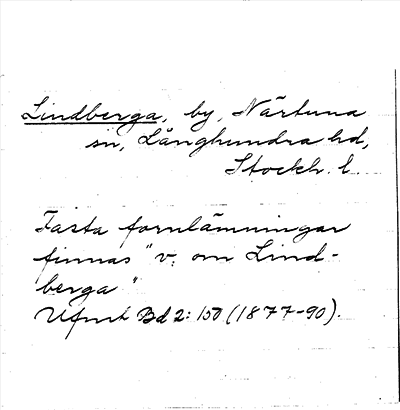 Lindberga, by, Närtuna
sn, Långhundra hd,
Stockh. l.
Fasta fornlämningar
finnas "v. om Lind-
berga"
Ufmt Bd 2: 150 (1877-90).